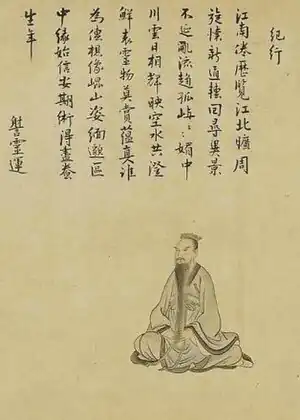 紀行
江南倦歷覽江北曠周
旋懷新道轉回尋異景
不延亂流趨孤嶼〻媚中
川雲日相輝映空水共澄
鮮表靈物莫賞蘊真誰
為傳想像崐山姿緬邈區
中緣始信安期術得盡養
生年
謝靈運